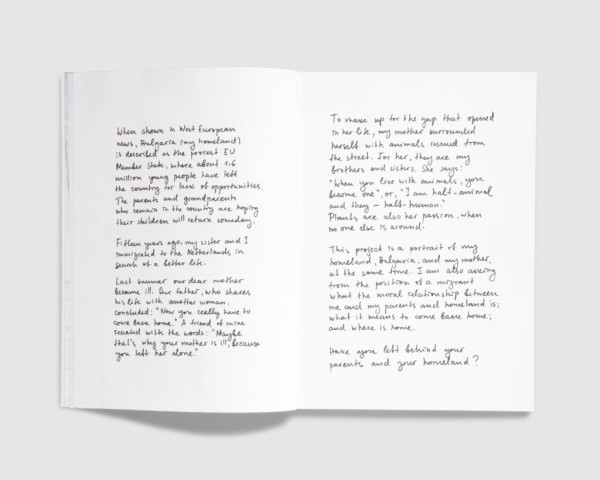 When shown in West European
news, Bulgaria (my homeland)
is described as the poorest EU
Member State, where about 1.6
million young people have left
the country for lack of opportunities.
The parents and grandparents
who remain in the country are hoping
their children will return someday.
Fifteen years ago, my sister and I
immigrated to the Netherlands in
search of a better life.
Last summer our dear mother
became ill. Our father, who shares
his life with another woman,
concluded: "Now you really have to
come back home." A friend of mine
reacted with the words: "Maybe
that's why your mother is ill, because
you left her alone."
To make up for the gap that opened
in her life, my mother surrounded
herself with animals rescued from
the street. For her, they are my
brothers and sisters. She says:
"When you live with animals, you
become one", or, "I am half-animal
and they – half-human."
Plants are also her passion, when
no one else is around.
This project is a portrait of my
homeland, Bulgaria, and my mother,
at the same time. I am also asking
from the position of a migrant
what the moral relationship between
me and my parents and homeland is;
what it means to come back home;
and where is home.
Have you left behind your
parents and your homeland?